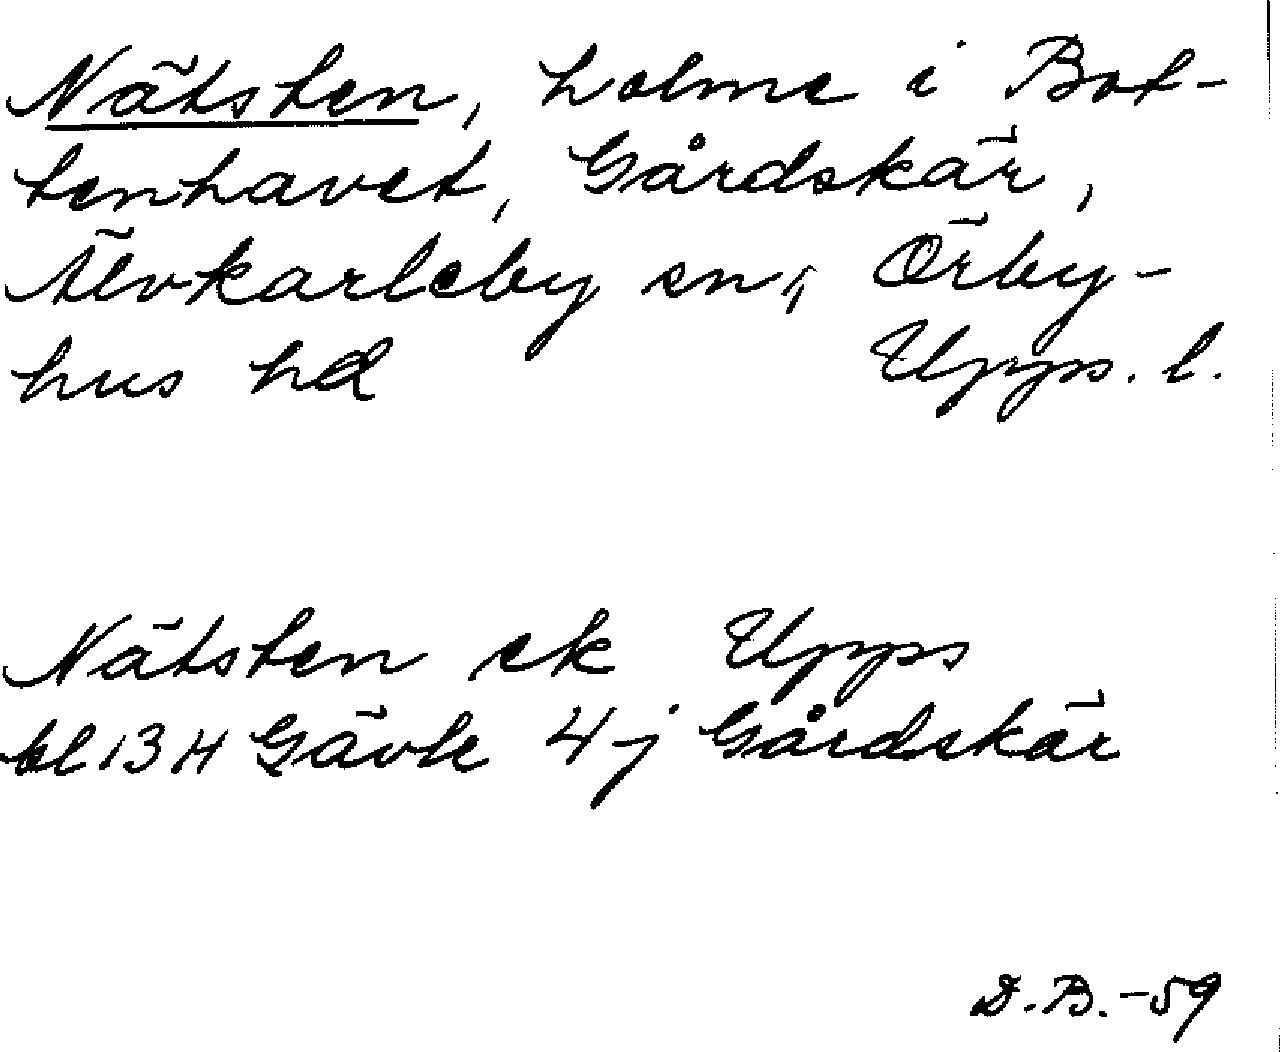 Nätsten, holme i Bot-
tenhavet, Gårdskär,
Älvkarleby sn, Örby-
hus hd Upps. l.
Nätsten ek Upps
bl 13 H Gävle 4 j Gårdskär
D.B. -59